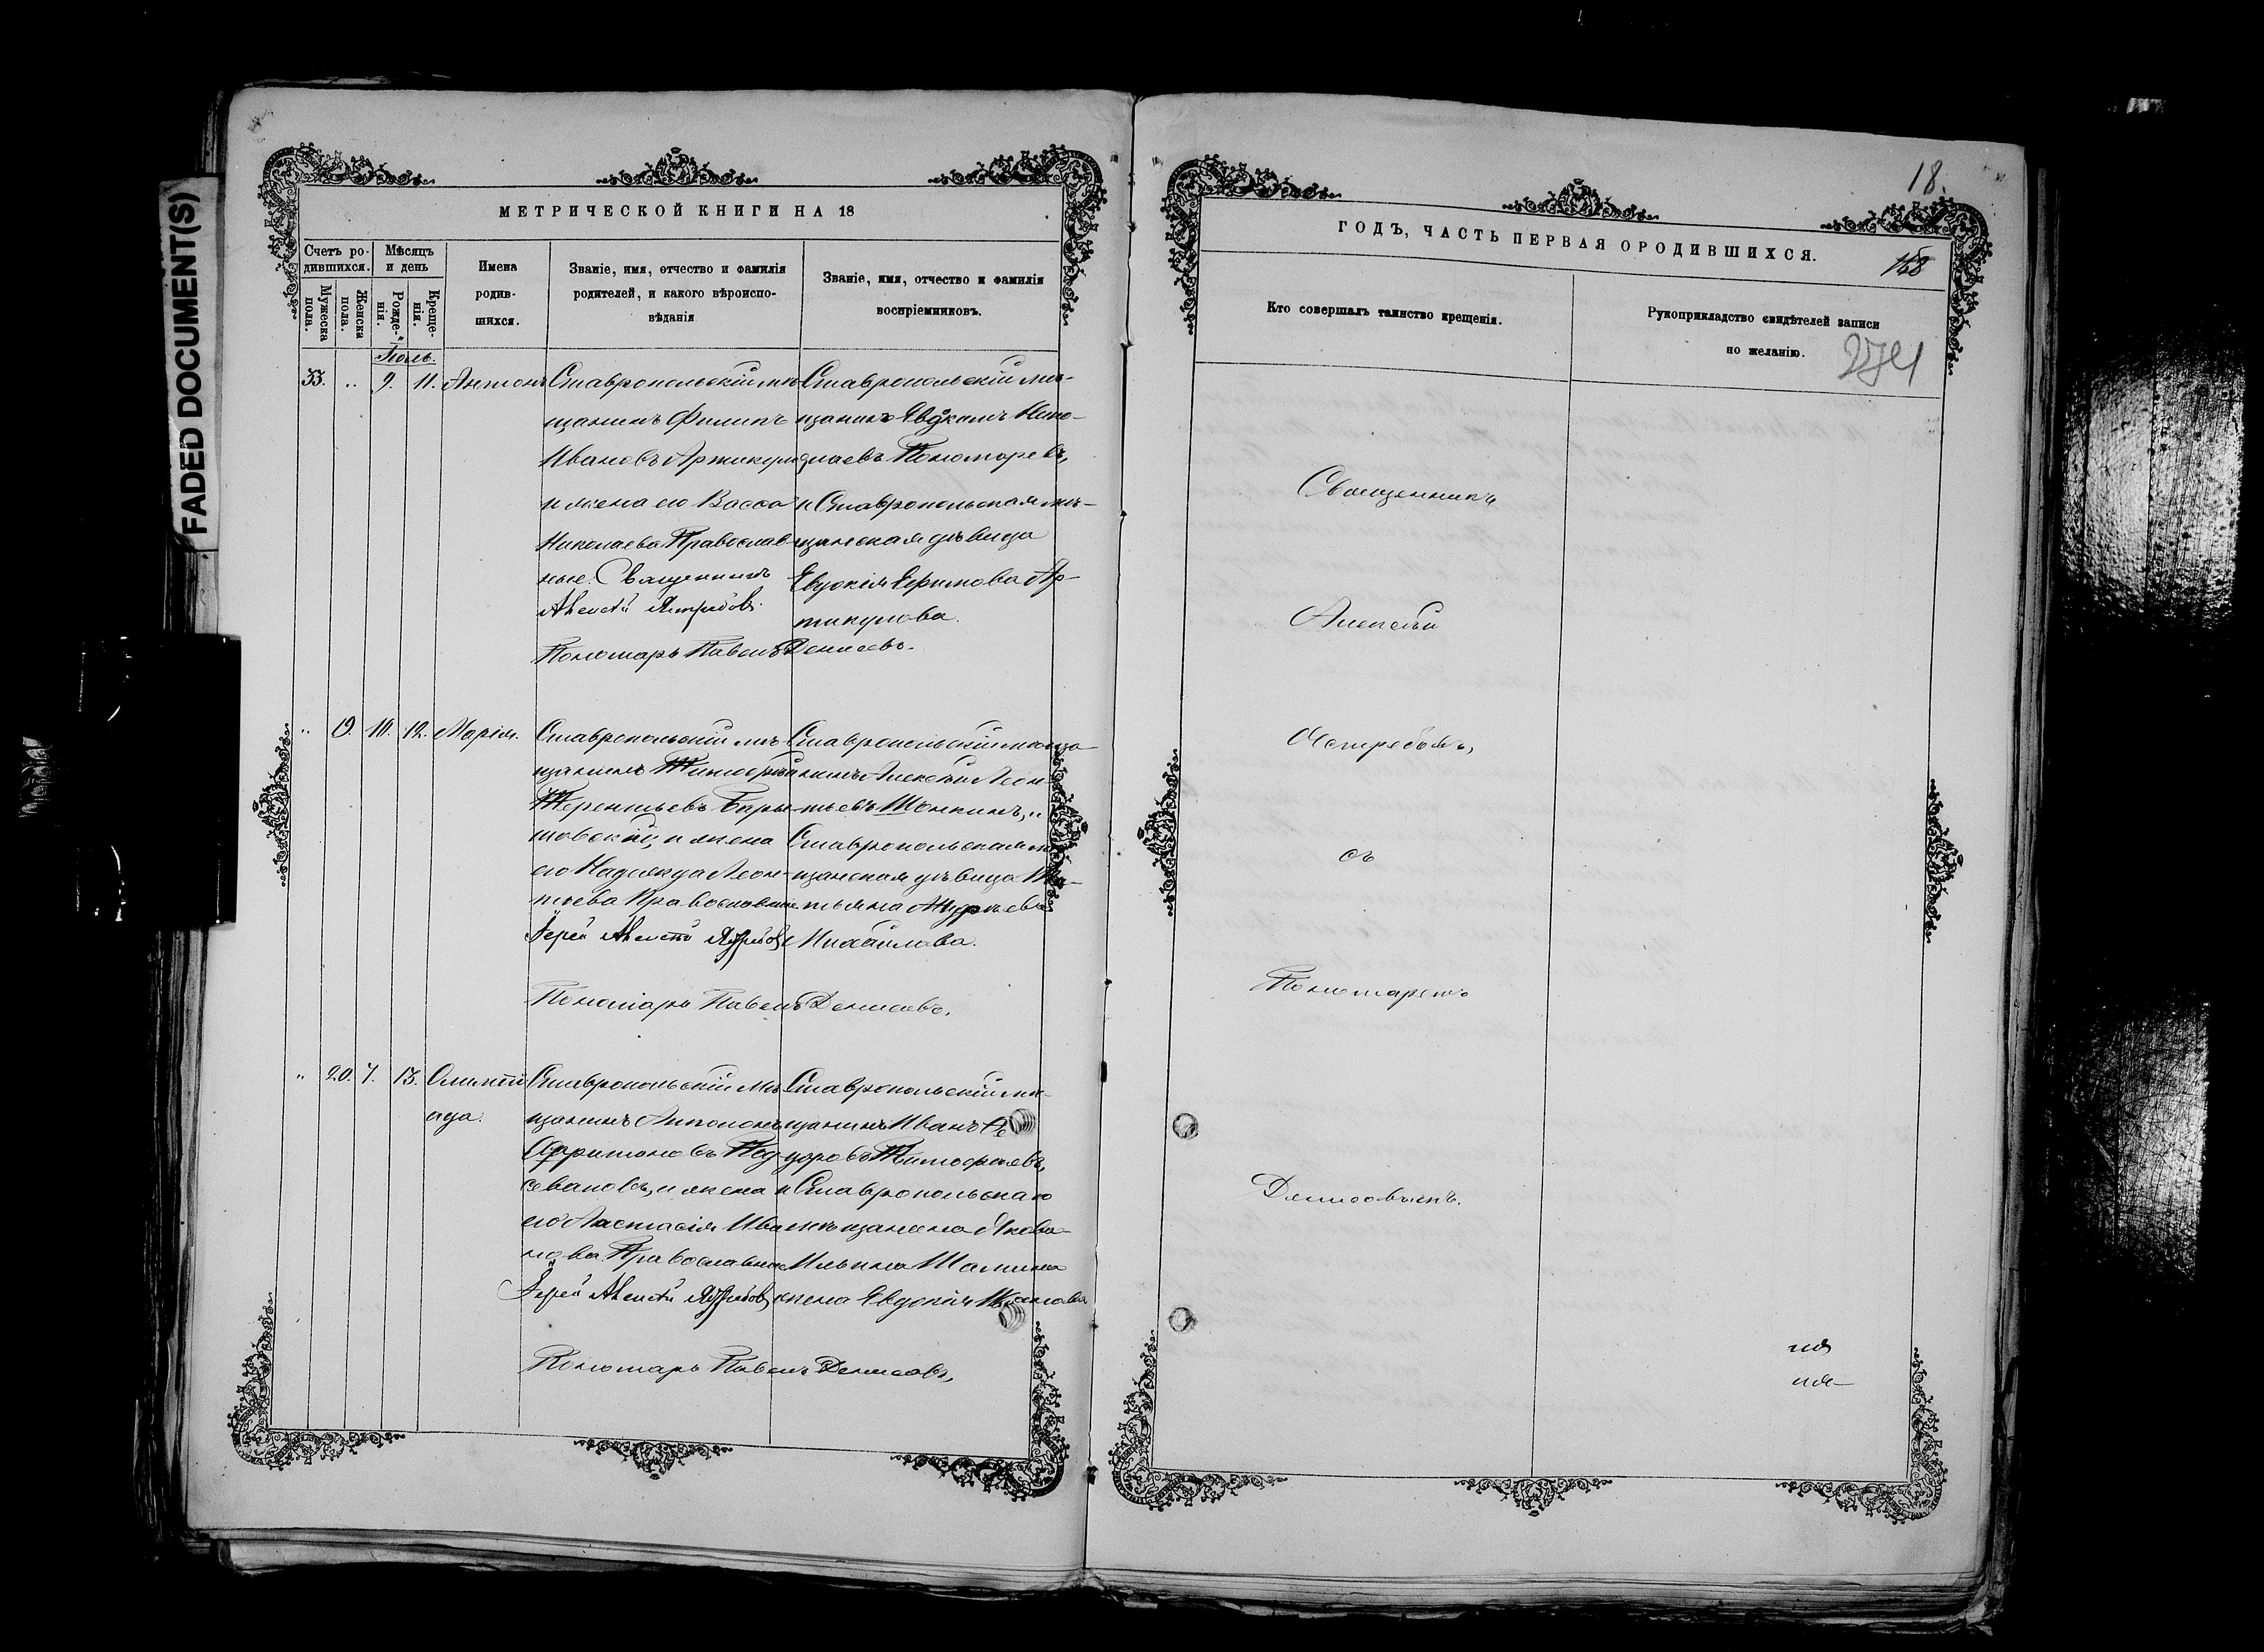 FADED DOCUMENT(S)
МЕТРИЧЕСКОЙ КНИГИ НА 18
Счетъ ро-
дившихся.
Мужеска
пола.
Женска
пола.
Мѣсяцъ
и день
Рожде-
нія.
Креще-
нія.
Имена
родив-
шихся.
Званіе, имя, отчество и фамилія
родителей, и какого вѣроиспо-
вѣданія
Званіе, имя, отчество и фамилія
воспріемниковъ.
Іюль.
33. .. 9. 11. Антонъ
Ставропольскій мѣ-
щанинъ Филипъ
Ивановъ Артикули
и жена его Васса
Николаева Православ-
ные. Священникъ
Алексѣй Ястребовъ.
Пономарь Павелъ Денисовъ.
Ставропольскій мѣ-
щанинъ Евдокимъ Нико-
лаевъ Пономаревъ,
и Ставропольская мѣ-
щанская дѣвица
Евдокія Ефимова Ар-
тикулова.
.. 19. 10. 12. Марія.
Ставропольскій мѣ-
щанинъ Тимофей
Терентьевъ
и жена
его Надежда Леон-
тьева Православные
Іерей Алексѣй Ястребовъ
Пономарь Павелъ Денисовъ.
Ставропольскій мѣща-
нинъ Алексѣй Леон-
тьевъ Шонкинъ, и
Ставропольская мѣ-
щанская дѣвица Та-
тьяна
Михайлова.
.. 20. 7. 13. Олимпі-
ада.
Ставропольскій мѣ-
щанинъ Аполонъ
Под-
севаловъ, и жена
его Анастасія Ива-
нова Православные
Іерей Алексѣй Ястребовъ
Пономарь Павелъ Денисовъ,
Ставропольскій мѣ-
щанинъ Иванъ Ѳе-
доровъ Тимофеевъ,
и Ставропольскаго
мѣщанина Якова
Ильина
жена Евдокія
18.
ГОДЪ, ЧАСТЬ ПЕРВАЯ О РОДИВШИХСЯ.
168
Кто совершалъ таинство крещенія.
Рукоприкладство свидѣтелей записи
по желанію.
274
Священникъ
Алексѣй
Ястребовъ,
съ
Пономаремъ
Денисовымъ.